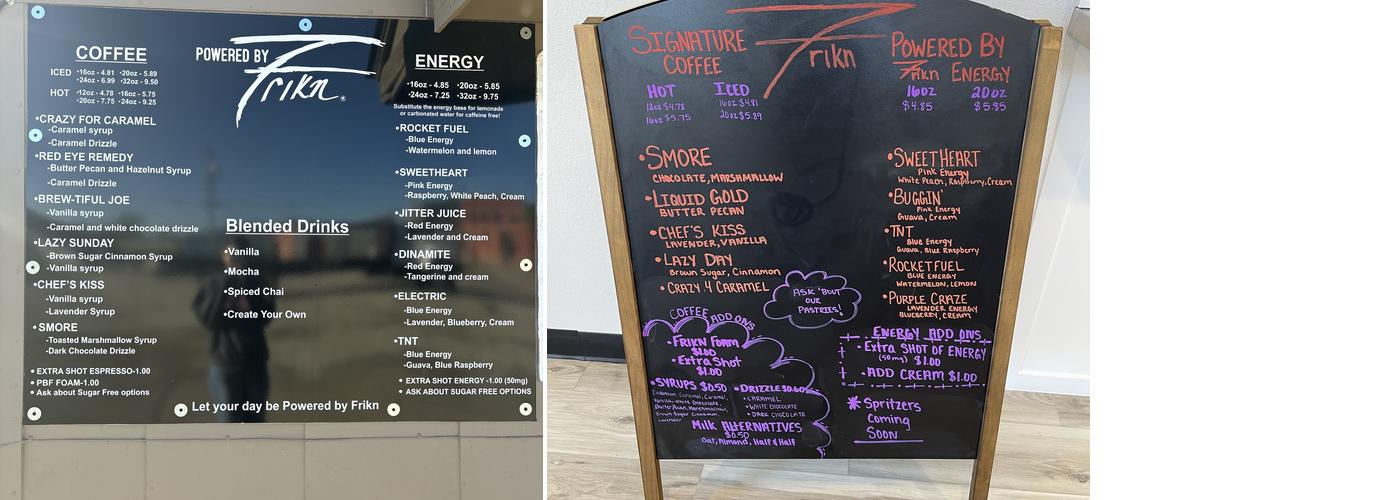 COFFEE
ICED •16oz - 4.81 •20oz - 5.89
•24oz - 6.99 •32oz - 9.50
HOT •12oz - 4.78 •16oz - 5.75
•20oz - 7.75 •24oz - 9.25
•CRAZY FOR CARAMEL
-Caramel syrup
-Caramel Drizzle
•RED EYE REMEDY
-Butter Pecan and Hazelnut Syrup
-Caramel Drizzle
•BREW-TIFUL JOE
-Vanilla syrup
-Caramel and white chocolate drizzle
•LAZY SUNDAY
-Brown Sugar Cinnamon Syrup
-Vanilla syrup
•CHEF'S KISS
-Vanilla syrup
-Lavender Syrup
•SMORE
-Toasted Marshmallow Syrup
-Dark Chocolate Drizzle
• EXTRA SHOT ESPRESSO-1.00
• PBF FOAM-1.00
• Ask about Sugar Free options
POWERED BY
Frikn
Blended Drinks
•Vanilla
•Mocha
•Spiced Chai
•Create Your Own
Let your day be Powered by Frikn
ENERGY
•16oz - 4.85 •20oz - 5.85
•24oz - 7.25 •32oz - 9.75
Substitute the energy base for lemonade
or carbonated water for caffeine free!
•ROCKET FUEL
-Blue Energy
-Watermelon and lemon
•SWEETHEART
-Pink Energy
-Raspberry, White Peach, Cream
•JITTER JUICE
-Red Energy
-Lavender and Cream
•DINAMITE
-Red Energy
-Tangerine and cream
•ELECTRIC
-Blue Energy
-Lavender, Blueberry, Cream
•TNT
-Blue Energy
-Guava, Blue Raspberry
• EXTRA SHOT ENERGY -1.00 (50mg)
• ASK ABOUT SUGAR FREE OPTIONS
SIGNATURE
COFFEE
Frikn
HOT ICED
12oz $4.78 16oz $4.81
16oz $5.75 20oz $5.89
•SMORE
CHOCOLATE, MARSHMALLOW
•LIQUID GOLD
BUTTER PECAN
•CHEF'S KISS
LAVENDER, VANILLA
•LAZY DAY
Brown Sugar, Cinnamon
•CRAZY 4 CARAMEL
ASK 'BOUT
OUR
PASTRIES!
COFFEE ADD ONS
•FRIKN FOAM
$1.00
•Extra Shot
$1.00
•SYRUPS $0.50
Caramel,
Vanilla, White Chocolate,
Butter Pecan, Marshmallow,
Brown Sugar Cinnamon,
Lavender
•DRIZZLE $0.50
•CARAMEL
•WHITE CHOCOLATE
•DARK CHOCOLATE
Milk ALTERNATIVES
$0.50
Oat, Almond, Half & Half
POWERED BY
Frikn ENERGY
16oz 20oz
$4.85 $5.85
•SWEETHEART
Pink Energy
White Peach, Raspburry, Cream
•BUGGIN'
Pink Energy
Guava, Cream
•TNT
Blue Energy
Guava, Blue Raspberry
•ROCKETFUEL
BLUE ENERGY
WATERMELON, LEMON
•PURPLE CRAZE
LAVENDER ENERGY
BLUEBERRY, CREAM
ENERGY ADD ONS
•Extra SHOT OF ENERGY
(50mg) $1.00
•ADD CREAM $1.00
*Spritzers
Coming
Soon